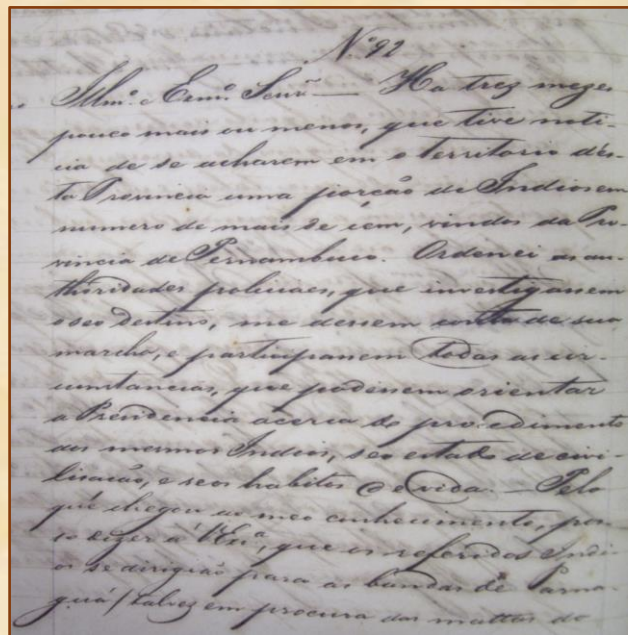 Nº 92
Illmº e Exmº Senrº — Ha trez mezes
pouco mais ou menos, que tive noti-
cia de se acharem em o territorio dés-
ta Provincia uma porção de Indios em
numero de mais de cem, vindos da Pro-
vincia de Pernambuco. Ordenei as au-
thoridades policiaes, que investigassem
o seo destino, me dessem conta de sua
marcha, e participassem todas as cir-
cumstancias, que podessem orientar
a Presidencia acerca do procedimento
dos mesmos Indios, seo estado de civi-
lisacão, e seos habitos de vida. — Pelo
que chegou ao meo conhecimento, pos-
so dizer á V Exª, que os referidos Indi-
os se dirigirão para as bandas de Parna-
guá/talvez em procura das mattas do